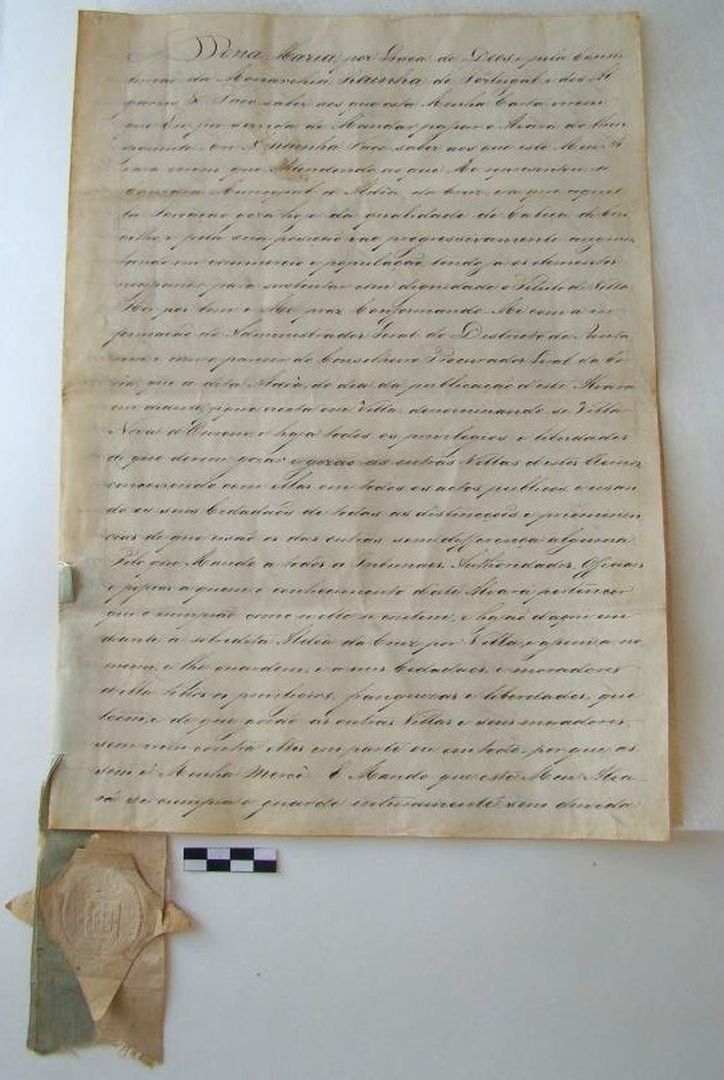 Dona Maria, por Graça de Deos e pela Consti-
tuição da Monarchia Rainha de Portugal e dos Al-
garves & Faço saber aos que esta Minha Carta virem
que Eu fui servida de Mandar passar o Alvará do theor
seguinte Eu A Rainha Faço saber aos que este Meu Al-
vará virem que Attendendo ao que Me representou a
Camara Municipal d'Aldêa da Cruz, e a que aquel-
la Povoação goza hoje da qualidade de Cabeça de Con-
celho e pela sua posição vae progressivamente augmen-
tando em commercio e população, tendo já os elementos
necessarios para sustentar com dignidade o Titulo de Villa.
Hei por bem e Me praz Conformando-Me com a in-
formação do Administrador Geral do Districto de Santa-
rem e com o parecer do Conselheiro Procurador Geral da Co-
roa, que a dita Aldêa, do dia da publicação d'este Alvará
em diante, fique erecta em Villa, denominando-se Villa
Nova d'Ourem, e haja todos os privilegios e liberdades
de que devem gozar e gozão as outras Villas d'estes Reinos,
concorrendo com ellas em todos os actos publicos, e usan-
do os seus Cidadãos de todas as distincções e preeminen-
cias de que usão os das outras sem differença alguma.
Pelo que Mando a todos os Tribunaes, Authoridades, Officiaes
e pessoas a quem o conhecimento d'este Alvará pertencer
que o cumprão como n'elle se contem, e hajão d'aqui em
diante a sobredita Aldêa da Cruz por Villa, e assim a no-
meiem, e lhe guardem, e a seus Cidadãos e moradores
d'ella todos os privilegios, franquezas e liberdades, que
teem, e de que gozão as outras Villas e seus moradores,
sem irem contra elles em parte ou em todo, porque as-
sim é Minha Mercê. E Mando que este Meu Alva-
rá se cumpra e guarde inteiramente sem duvida